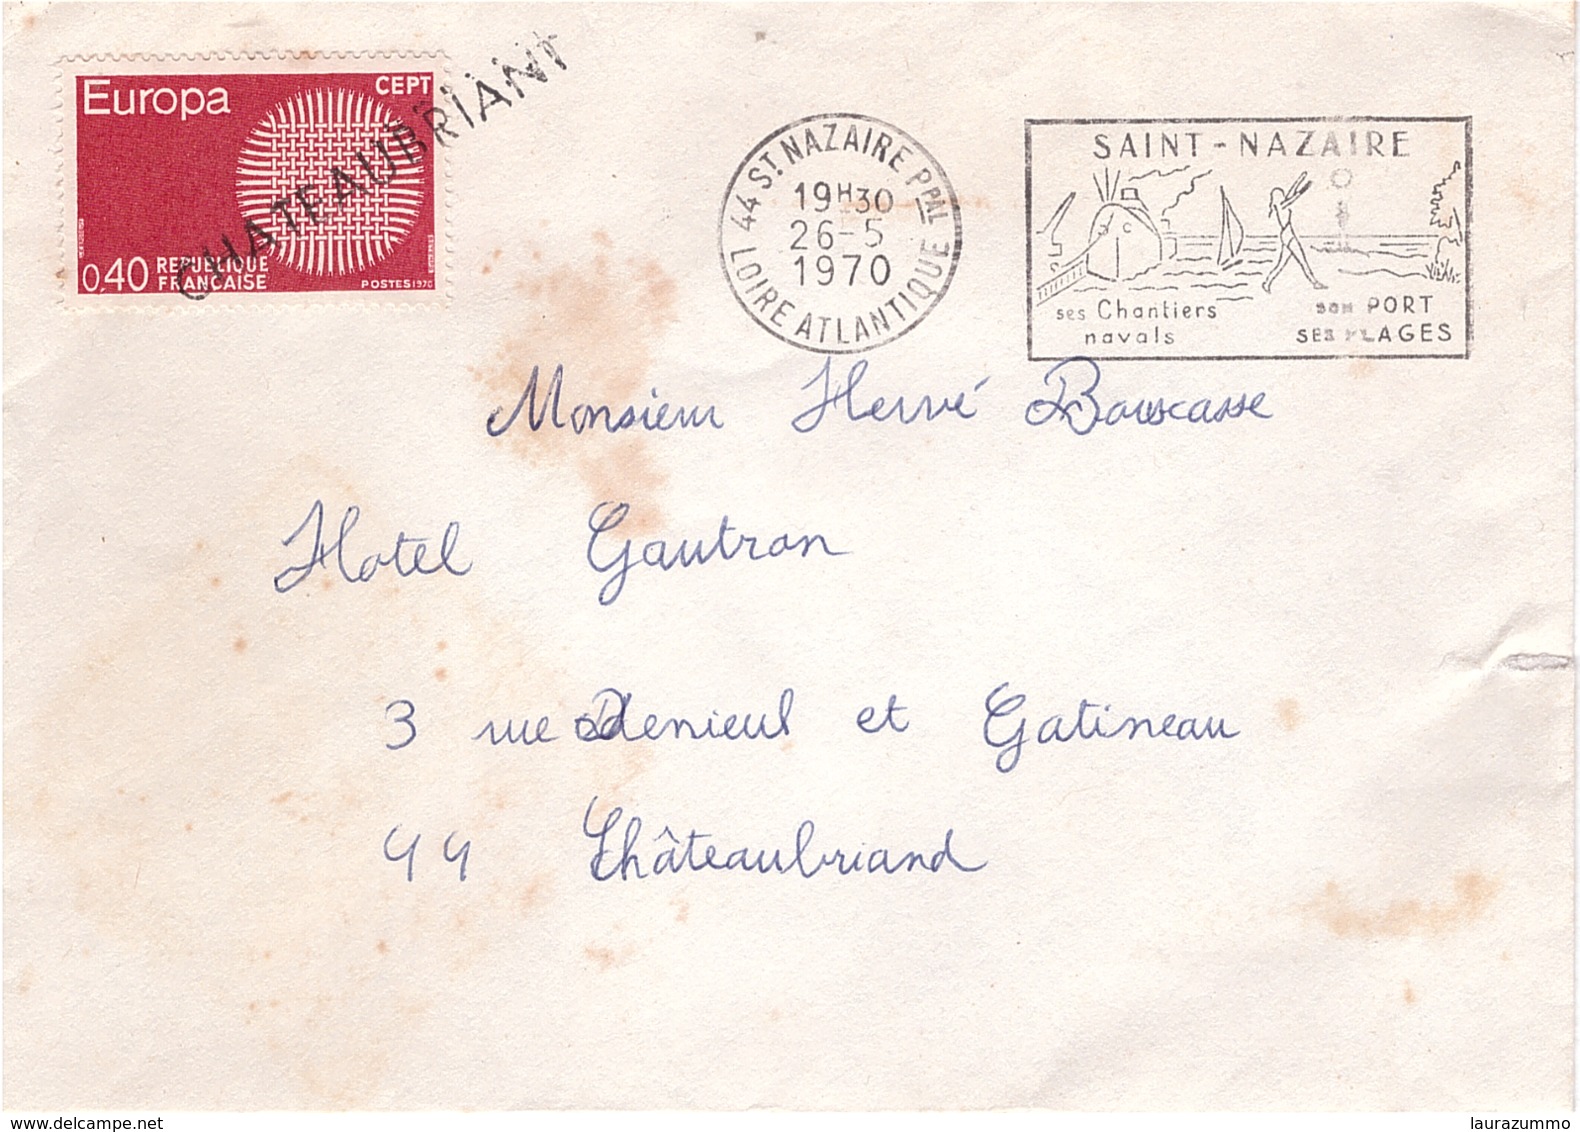 Europa
CEPT
0,40 REPUBLIQUE
FRANÇAISE
POSTES 1970
CHATEAUBRIANT
44 ST NAZAIRE PPAL
19H30
26-5
1970
LOIRE ATLANTIQUE
SAINT-NAZAIRE
S C
ses Chantiers
navals
son PORT
SES PLAGES
Monsieur Hervé Bouscasse
Hotel Gautron
3 rue Denieul et Gatineau
44 Châteaubriand
delcampe.net
laurazummo